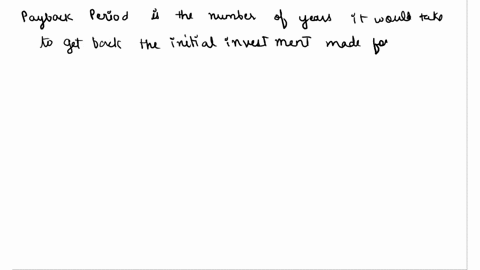 Payback Period is the number of years it would take
to get back the initial investment made for